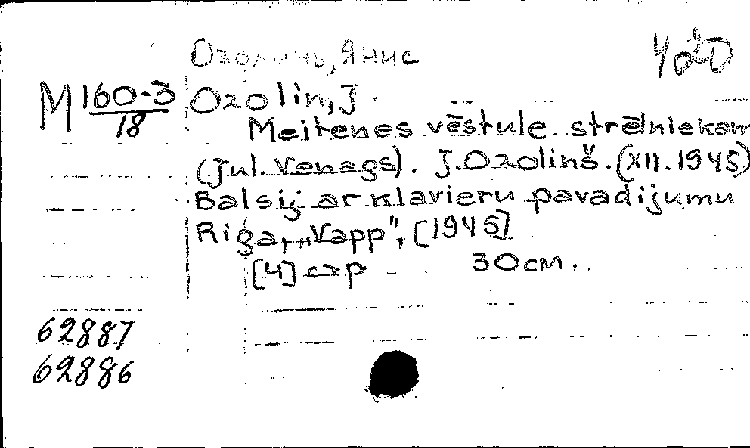 Озолинь, Янис
М 160-3
18
Ozolin, J.
Meitenes vēstule strēlniekam
(Jul. Vanags). J. Ozoliņš. (XII. 1945)
Balsij ar klavieru pavadijumu
Riga, „Vapp", [1945]
[4] p 30 cm.
62887
62886